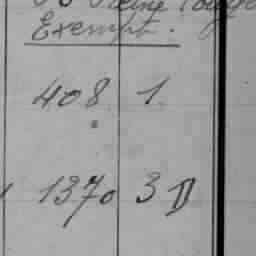 Exempt.
408. 1.
1370 3 D